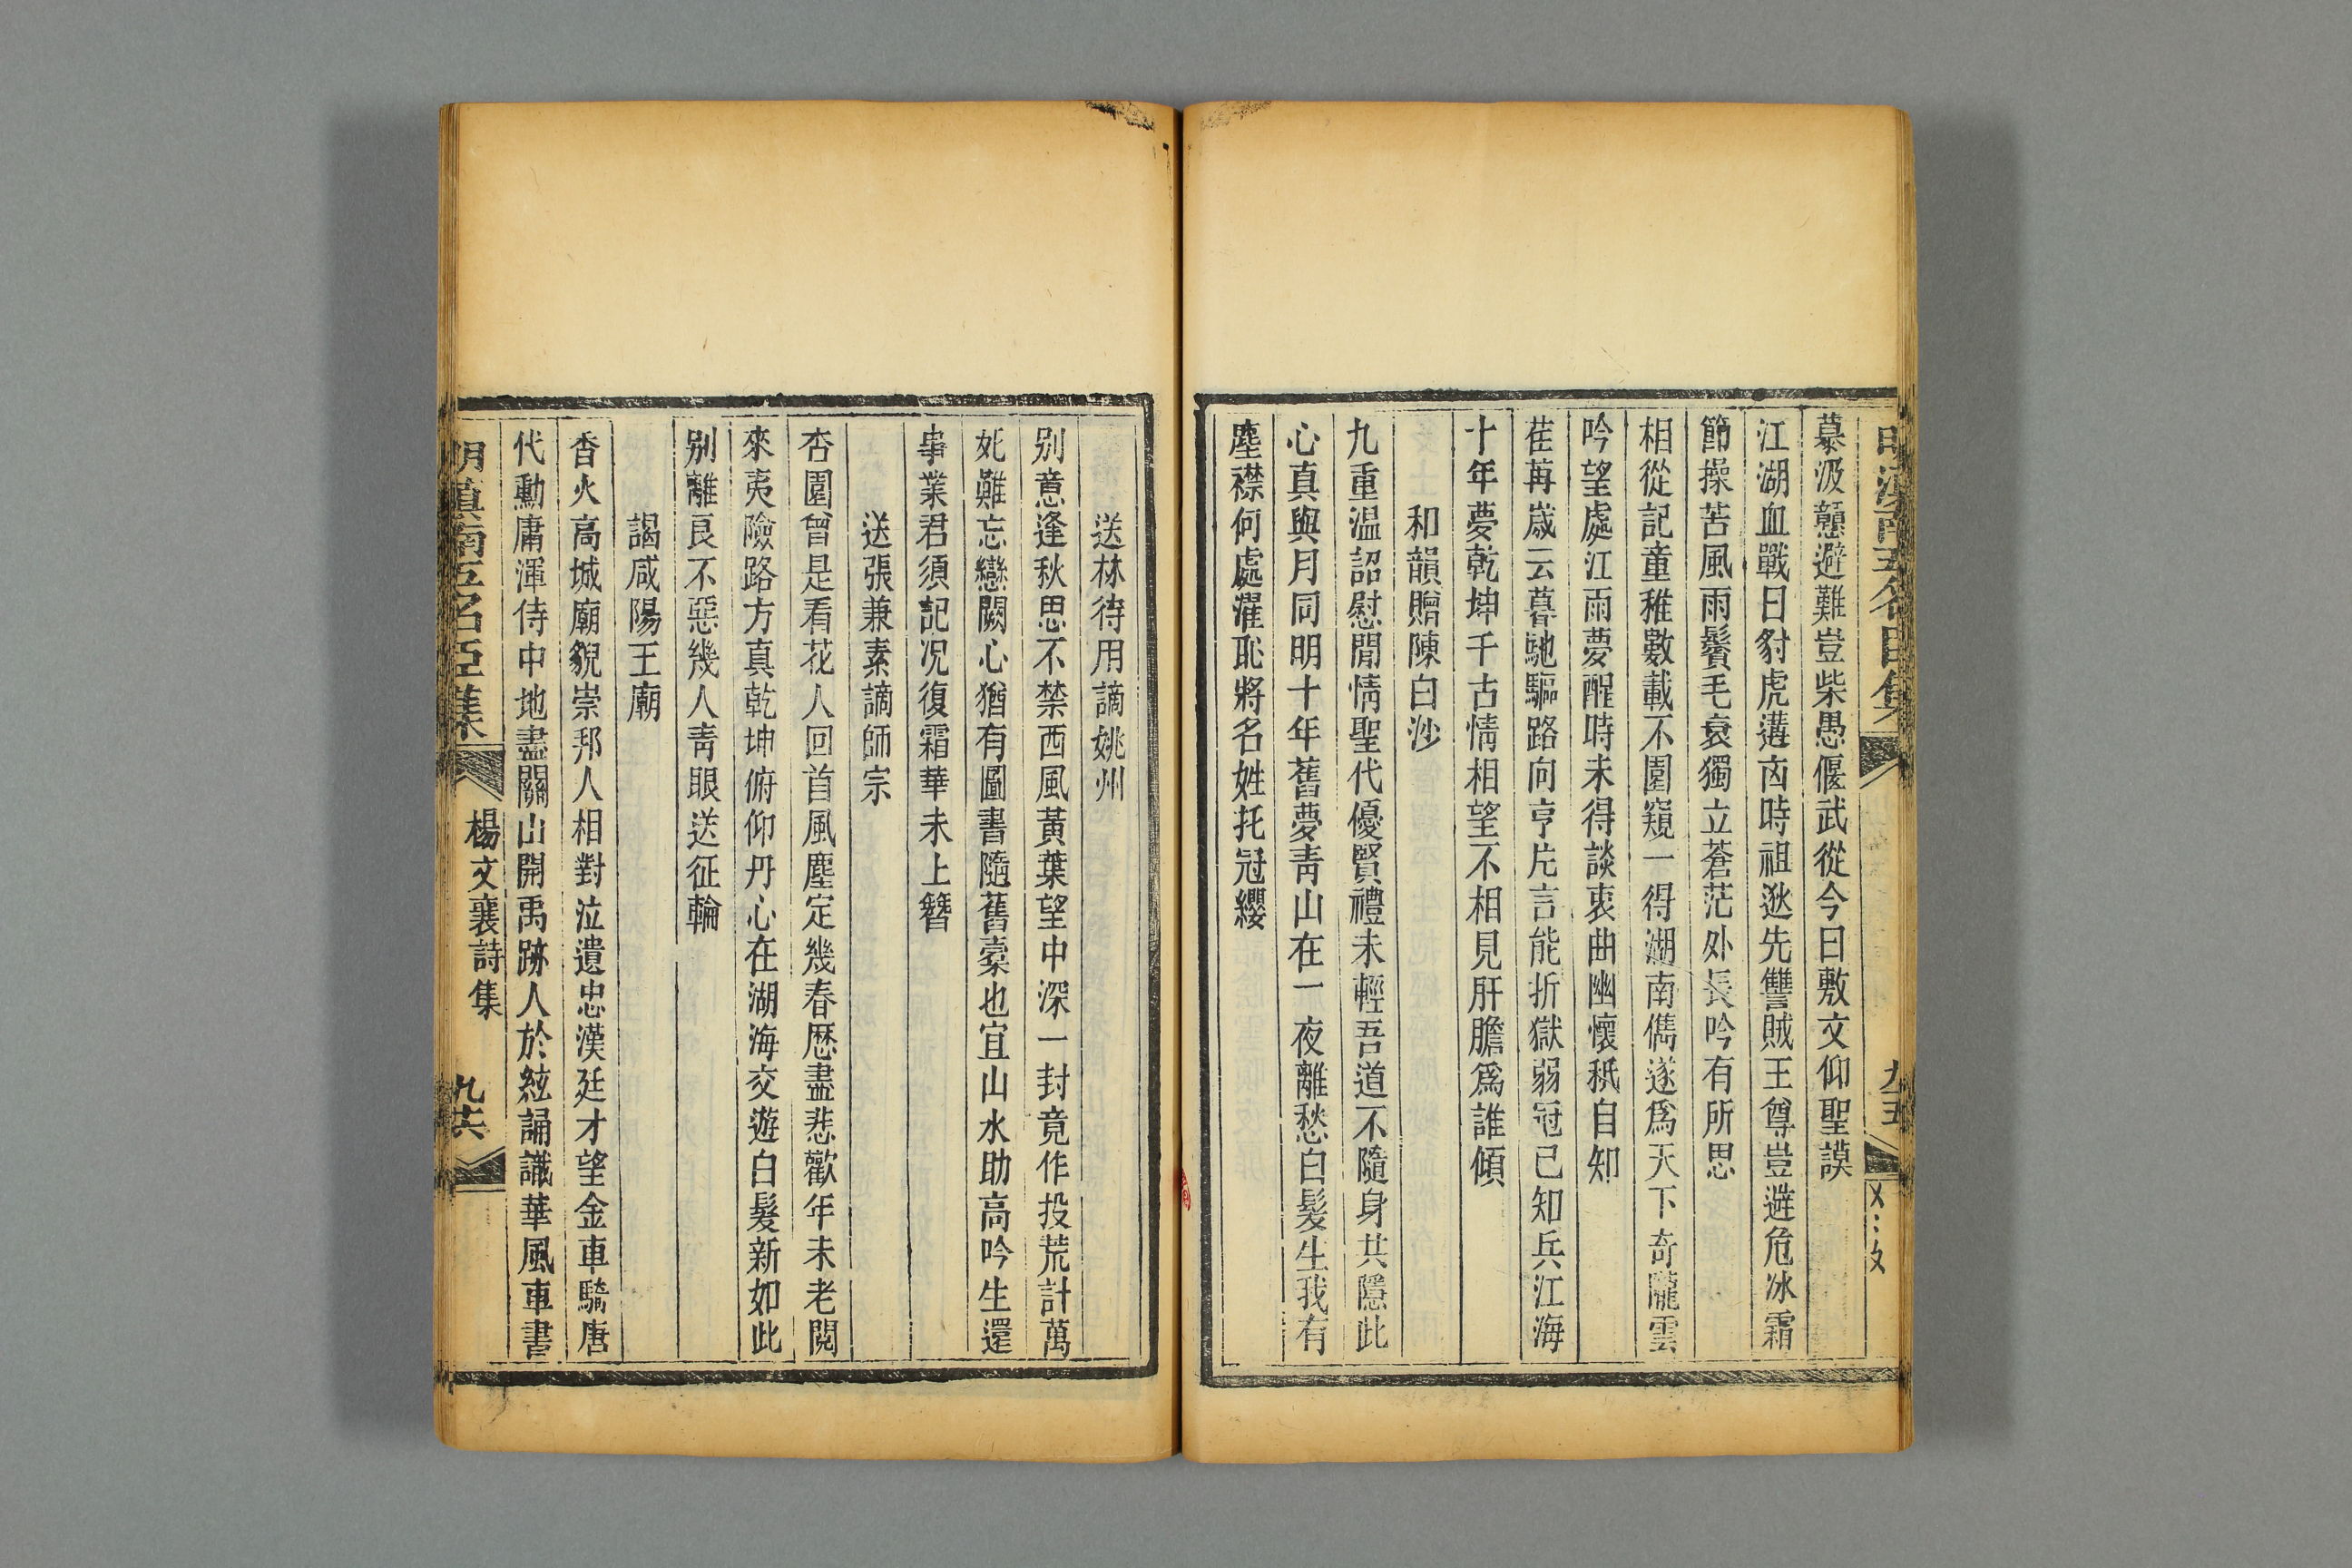 慕汲戇避難豈柴愚偃武從今日敷文仰聖謨
江湖血戰日豺虎遘凶時祖逖先讐賊王尊豈避危冰霜
節操苦風雨鬢毛衰獨立蒼茫外長吟有所思
相從記童稚數載不園窺一得湖南儁遂爲天下奇隴雲
吟望處江雨夢醒時未得談衷曲幽懷秖自知
荏苒歲云暮馳驅路向亨片言能折獄弱冠已知兵江海
十年夢乾坤千古情相望不相見肝膽爲誰傾
和韻贈陳白沙
九重温詔慰閒情聖代優賢禮未輕吾道不隨身共隱此
心真與月同明十年舊夢青山在一夜離愁白髮生我有
塵襟何處濯恥將名姓托冠纓
送林待用謫姚州
别意逢秋思不禁西風黃葉望中深一封竟作投荒計萬
死難忘戀闕心猶有圖書隨舊槖也宜山水助高吟生還
事業君須記况復霜華未上簪
送張兼素謫師宗
杏園曾是看花人回首風塵定幾春歷盡悲歡年未老閱
來夷險路方真乾坤俯仰丹心在湖海交遊白髮新如此
别離良不惡幾人青眼送征輪
謁咸陽王廟
香火高城廟貌崇邦人相對泣遺忠漢廷才望金車騎唐
代勳庸渾侍中地盡關山開禹跡人於絃誦識華風車書
明滇南五名臣集
楊文襄詩集
九六